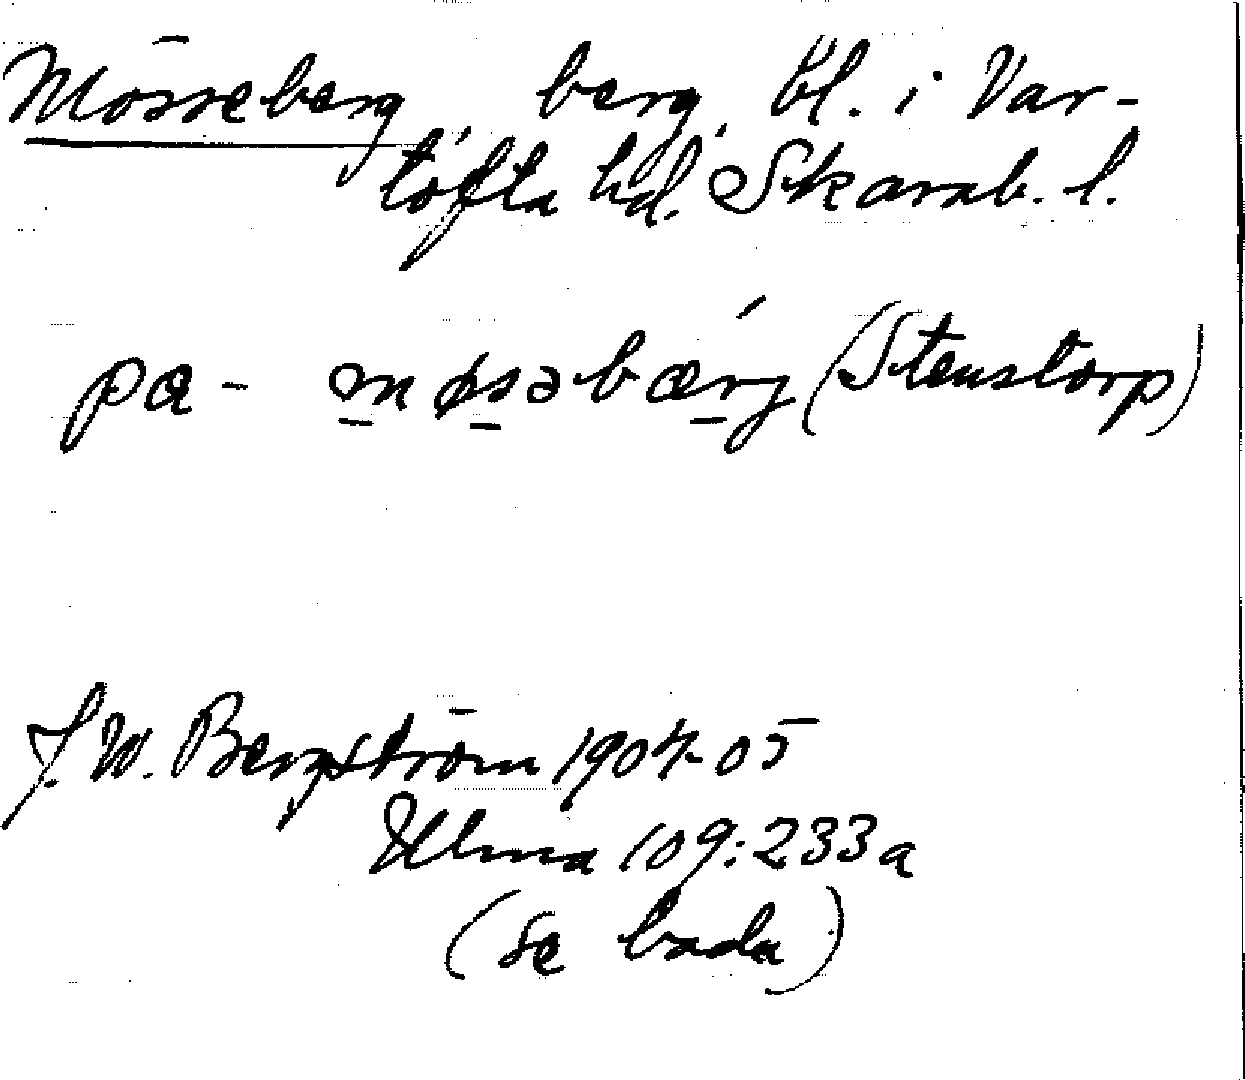 Mösseberg, berg, bl. i Var-
tofta hd. Skarab. l.
pa - møsəbærj (Stenstorp)
J. W. Bergström 1904-05
Ulma 109:233a
(se bada)